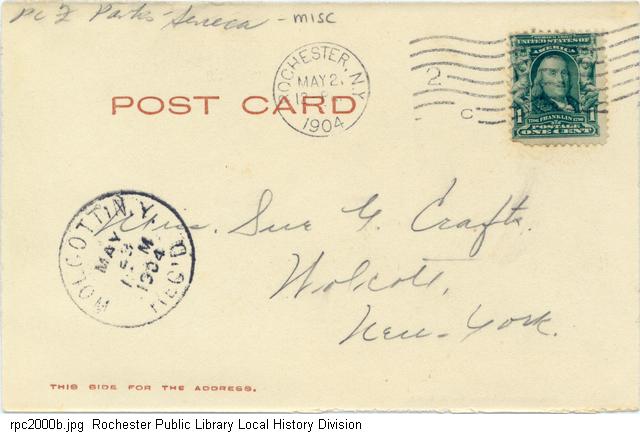 PC Z Parks Seneca - misc
ROCHESTER, N.Y.
MAY 2
1904
2
C
SERIES 1902
UNITED STATES OF
AMERICA
1706 FRANKLIN 1790
1 POSTAGE 1
ONE CENT
POST CARD
WOLCOTT, N.Y.
REC'D
MAY
M
1904
Miss. Sue G. Crafts.
Wolcott,
New-York.
THIS SIDE FOR THE ADDRESS.
rpc2000b.jpg Rochester Public Library Local History Division